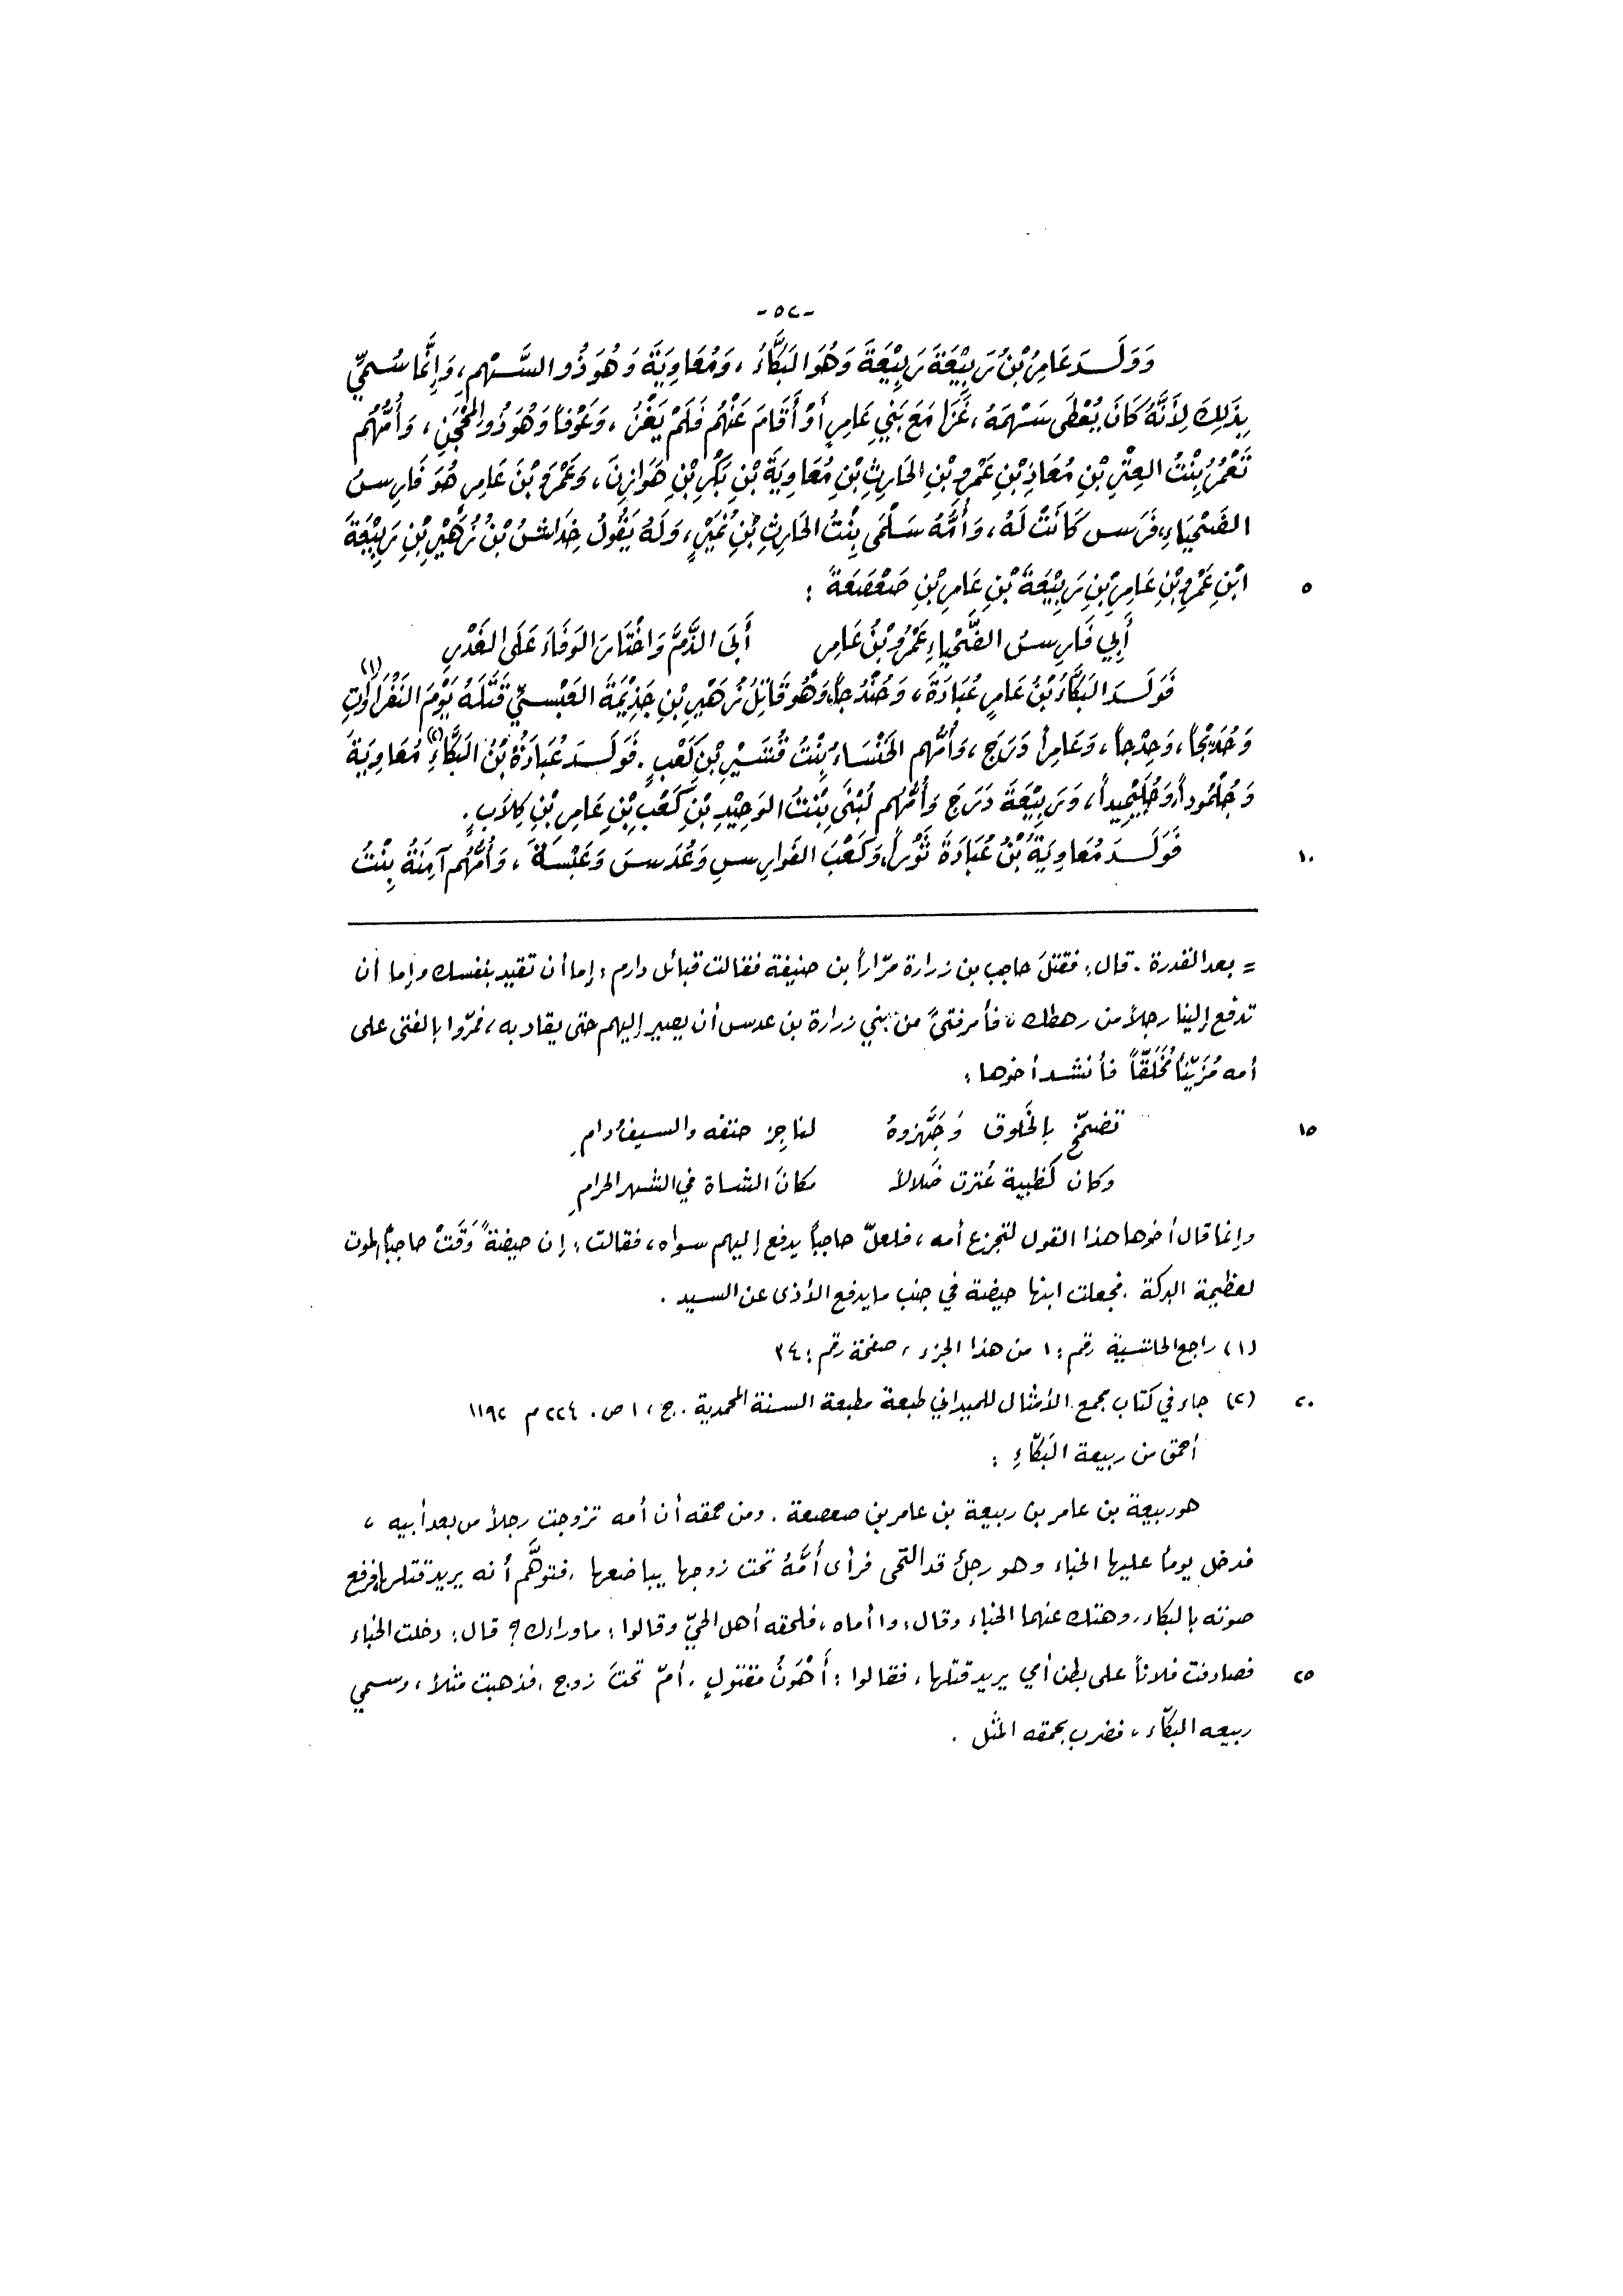 -٥٢-
وَوَلَــدَ عَامِرُ بْنُ رَبِيْعَةَ رَبِيْعَةَ وَهُوَ البَكَّاءُ ، وَمُعَاوِيَةَ وَهُوَ ذُو السَّــهْمِ ، وَإِنَّمَا سُــمِّيَ
بِذَلِكَ لِأَنَّهُ كَانَ يُعْطَى سَــهْمَهُ ، غَزَا مَعَ بَنِي عَامِرٍ أَوْ أَقَامَ عَنْهُم فَلَمْ يَغْزُ ، وَعَوْفاً وَهُوَ ذُو المِحْجَنِ ، وَأُمُّهُم
تَعْمُرُ بِنْتُ العِتْرِ بْنِ مُعَاذِ بْنِ عَمْرِو بْنِ الحَارِثِ بْنِ مُعَاوِيَةَ بْنِ بَكْرِ بْنِ هَوَازِنَ ، وَعَمْرَو بْنَ عَامِرٍ هُوَ فَارِسُ
الضَّحْيَاءِ ، فَرَسٍ كَانَتْ لَهُ ، وَأُمُّهُ سَــلْمَى بِنْتُ الحَارِثِ بْنِ نُمَيْرٍ ، وَلَهُ يَقُولُ خِدَاشُ بْنُ زُهَيْرِ بْنِ رَبِيْعَةَ
ابْنِ عَمْرِو بْنِ عَامِرِ بْنِ رَبِيْعَةَ بْنِ عَامِرِ بْنِ صَعْصَعَةَ : ٥
أَبِي فَارِسُ الضَّحْيَاءِ عَمْرُو بْنُ عَامِرٍ أَبَى الذَّمَّ وَاخْتَارَ الوَفَاءَ عَلَى الغَدْرِ
فَوَلَــدَ البَكَّاءُ بْنُ عَامِرٍ عُبَادَةَ ، وَحُنْدُجاً ، وَهُوَ قَاتِلُ زُهَيْرِ بْنِ جَذِيْمَةَ العَبْسِيِّ قَتَلَهُ يَوْمَ النَّفْرَاوَاتِ (١)
وَحُدَيْجاً ، وَحِدْجاً ، وَعَامِراً دَرَجَ ، وَأُمُّهُم الخَنْسَاءُ بِنْتُ قُشَــيْرِ بْنِ كَعْبٍ . فَوَلَــدَ عُبَادَةُ بْنُ البَكَّاءِ (٢) مُعَاوِيَةَ
وَجُلْمُوداً ، وَجُلَيْمِيداً ، وَرَبِيْعَةَ دَرَجَ وَأُمُّهُم لُبْنَى بِنْتُ الوَحِيْدِ بْنِ كَعْبِ بْنِ عَامِرِ بْنِ كِلَابٍ .
فَوَلَــدَ مُعَاوِيَةُ بْنُ عُبَادَةَ ثَوْراً ، وَكَعْبَ الفَوَارِسِ وَعُدَسَ وَعَبْسَةَ ، وَأُمُّهُم آمِنَةُ بِنْتُ ١٠
= بعد القدرة . قال : فقتلَ حاجب بن زرارة مرّاراً بن حنيفة فقالت قبائل دارم : إما أن تقيد بنفسك وإما أن
تدفع إلينا رجلاً من رهطك ، فأمر فتىً من بني زرارة بن عدس أن يصير إليهم حتى يقاد به ، فمرّوا بالفتى على
أمه مُزَيَّناً مُخَلَّقاً فأنشــد أخوها :
تضمّخ بالخَلوق وَجَهَّزوهُ لناجِز حتفه والسيفُ دامِ ١٥
وكان كظبية عُتِرت ضَلالاً مكانَ الشاة في الشهر الحرامِ
وإنما قال أخوها هذا القول لتجزع أمه ، فلعلّ حاجباً يدفع إليهم سواه ، فقالت : إن حيضةً وَقَتْ حاجباً الموت
لعظيمة البركة . فجعلت ابنها حيضة في جنب ما يدفع الأذى عن السيد .
(١) راجع الحاشية رقم : ١ من هذا الجزء ، صفحة رقم : ٣٤
(٢) جاء في كتاب مجمع الأمثال للميداني طبعة مطبعة السنة المحمدية . ج ، ١ ص . ٢٢٤ م ١١٩٢ ٢٠
أحمق من ربيعة البَكّاءِ :
هو ربيعة بن عامر بن ربيعة بن عامر بن صعصعة . ومن حمقه أن أمه تزوجت رجلاً من بعد أبيه ،
فدخل يوماً عليها الخباء وهو رجلٌ قد التحى فرأى أُمَّهُ تحت زوجها يباضعها ، فتوهَّم أنه يريد قتلها ، فرفع
صوته بالبكاء ، وهتك عنهما الخباء وقال : وا أماه ، فلحقه أهل الحيّ وقالوا : ما وراءك ؟ قال : دخلت الخباء
فصادفت فلاناً على بطن أمي يريد قتلها ، فقالوا : أَهْوَنُ مقتولٍ . أمّ تحتَ زوج ، فذهبت مثلاً ، وسمي ٢٥
ربيعه البكّاء ، فضرب بحمقه المثل .